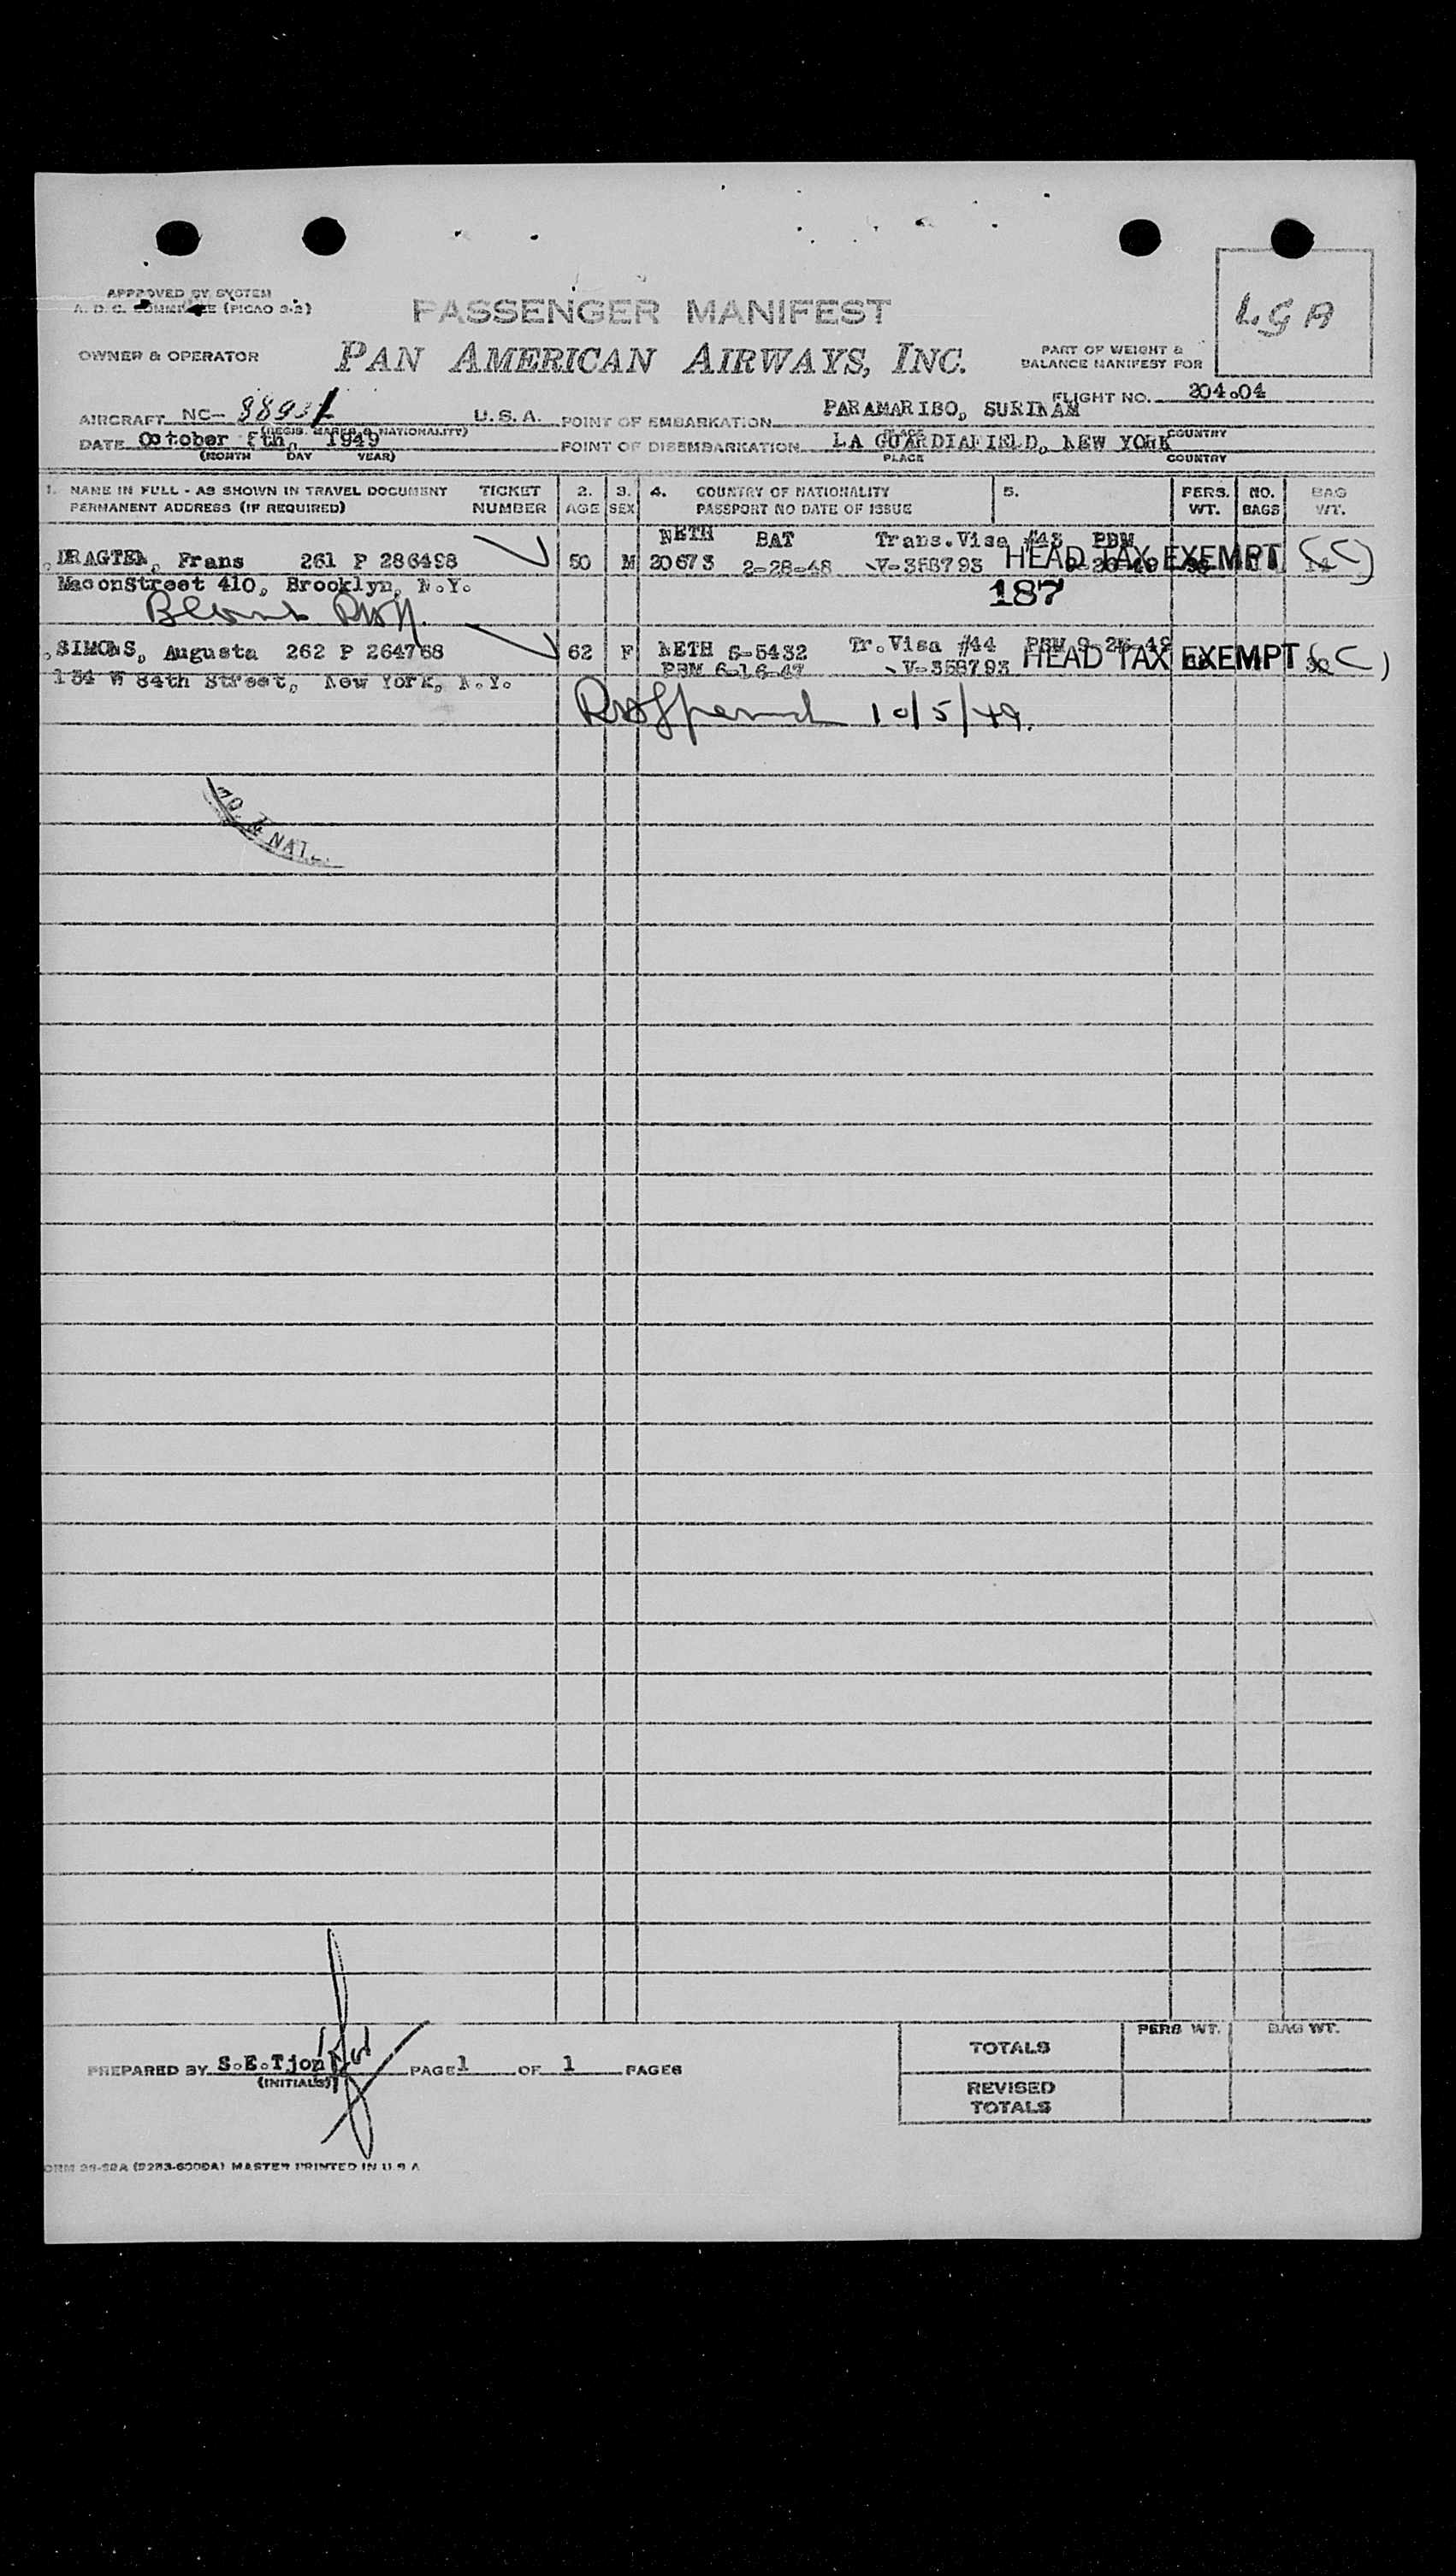 APPROVED BY SYSTEM
A. D. C. COMMITTEE (PICAO 9-2)
LGA
PASSENGER MANIFEST
OWNER & OPERATOR
PAN AMERICAN AIRWAYS, INC.
PART OF WEIGHT &
BALANCE MANIFEST FOR
FLIGHT NO. 204.04
AIRCRAFT NC- U.S.A. POINT OF EMBARKATION PARAMARIBO, SURINAM
(REGIS. MARKS & NATIONALITY) PLACE COUNTRY
DATE October 5th, 1949 POINT OF DISEMBARKATION LA GUARDIAFIELD, NEW YORK
(MONTH DAY YEAR) PLACE COUNTRY
1. NAME IN FULL - AS SHOWN IN TRAVEL DOCUMENT TICKET 2. 3. 4. COUNTRY OF NATIONALITY 5. PERS. NO. BAG
PERMANENT ADDRESS (IF REQUIRED) NUMBER AGE SEX PASSPORT NO DATE OF ISSUE WT. BAGS WT.
NETH BAT Trans.Visa #43 PBM
DRAGTEN, Frans 261 P 286498 50 M 20673 2-28-48 V-358793 HEAD TAX EXEMPT (C)
MaconStreet 410, Brooklyn, N.Y. 187
SIMONS, Augusta 262 P 264768 62 F NETH S-5432 Tr.Visa #44 PBM HEAD TAX EXEMPT (C)
PBM 6-16-47 V-358793
154 W 84th Street, New York, N.Y.
10/5/49.
NAT
PREPARED BY S.E.Tjon PAGE 1 OF 1 PAGES
(INITIALS)
TOTALS PERS WT. BAG WT.
REVISED
TOTALS
MASTER PRINTED IN U S A